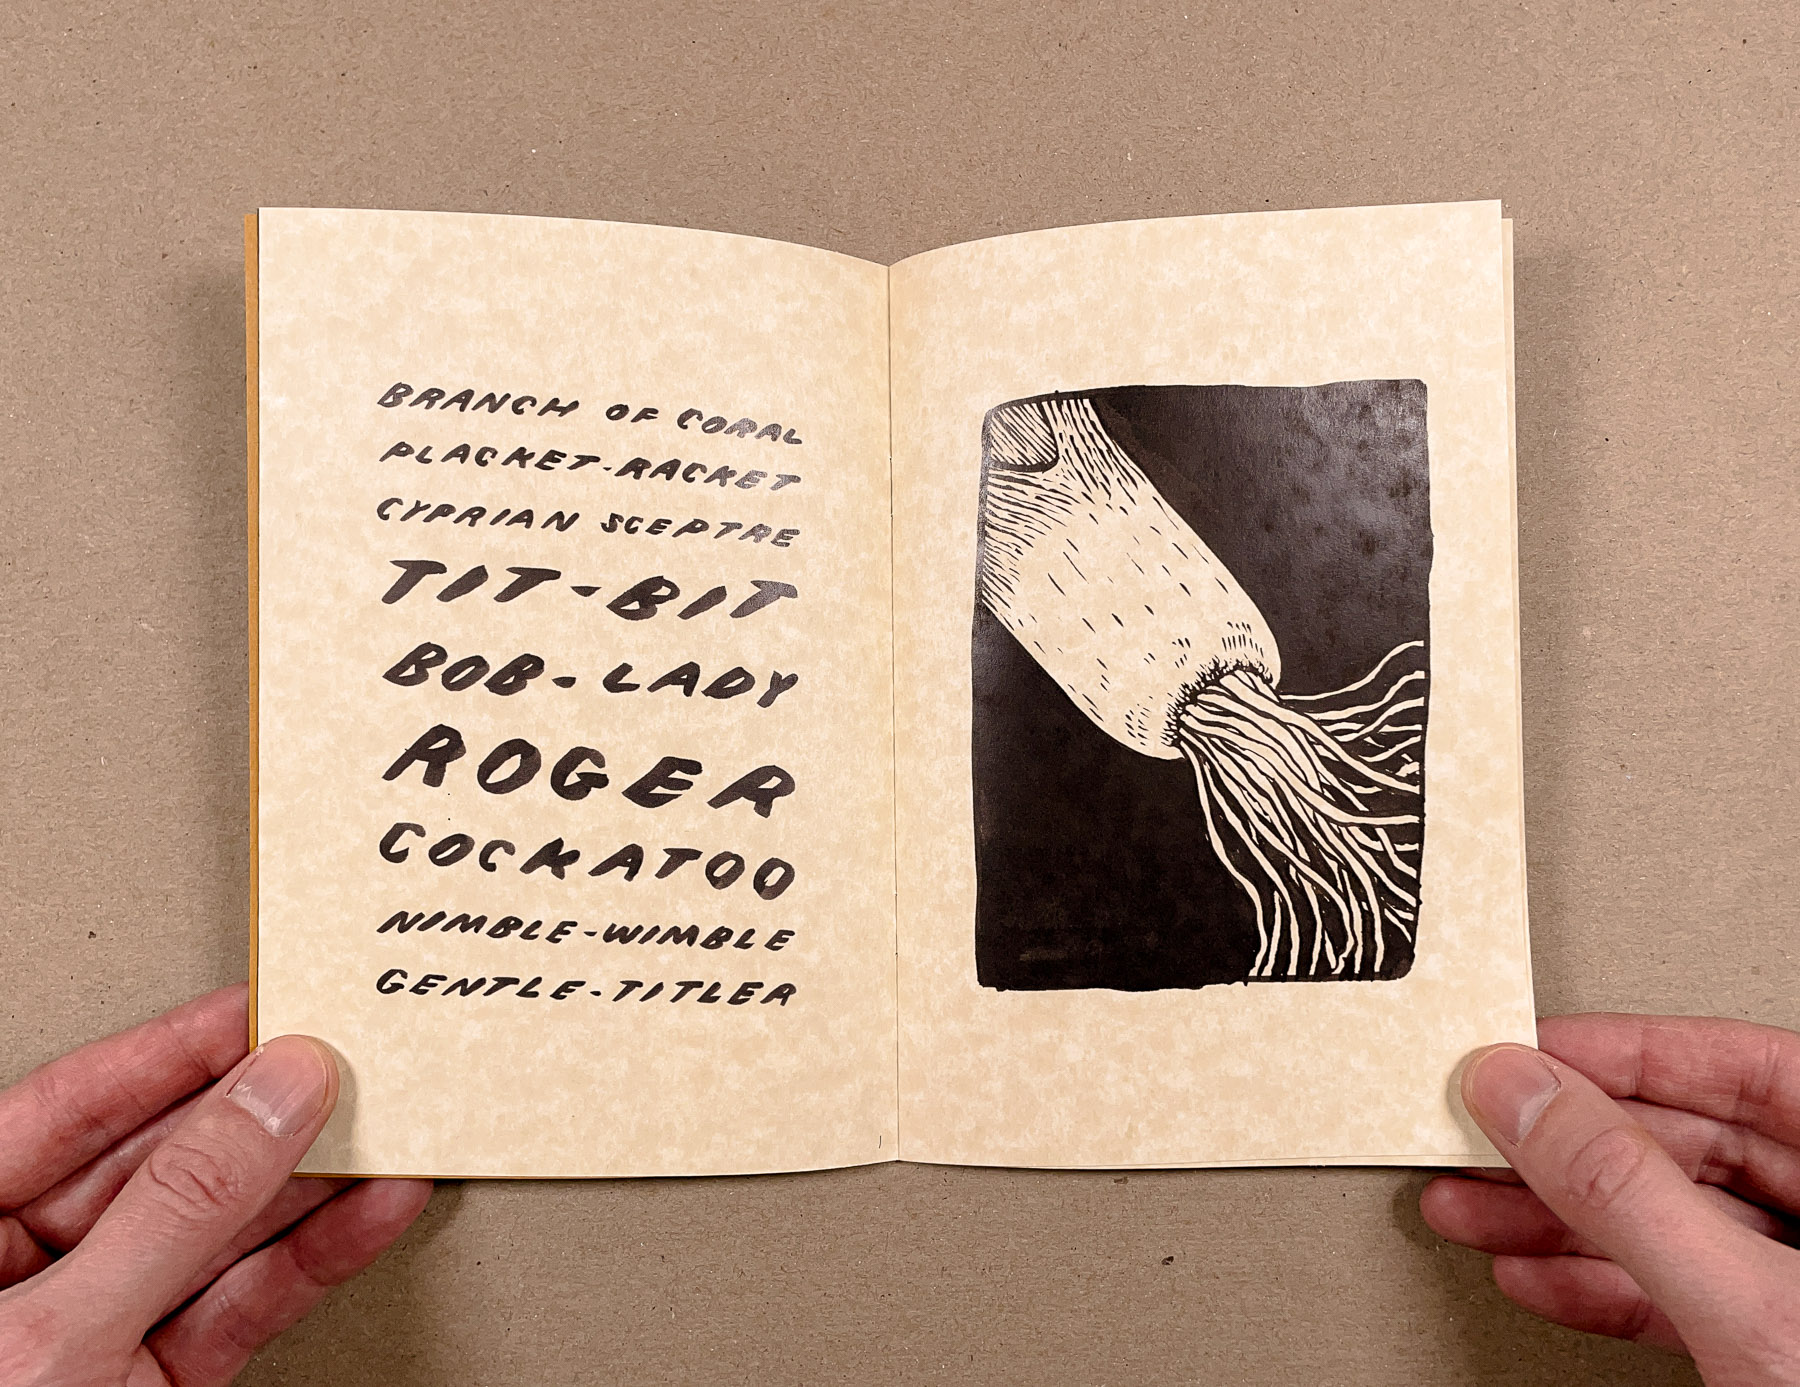 BRANCH OF CORAL
PLACKET-RACKET
CYPRIAN SCEPTRE
TIT-BIT
BOB-LADY
ROGER
COCKATOO
NIMBLE-WIMBLE
GENTLE-TITLER